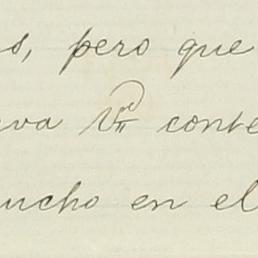 s, pero que
va Vd conte
ucho en el